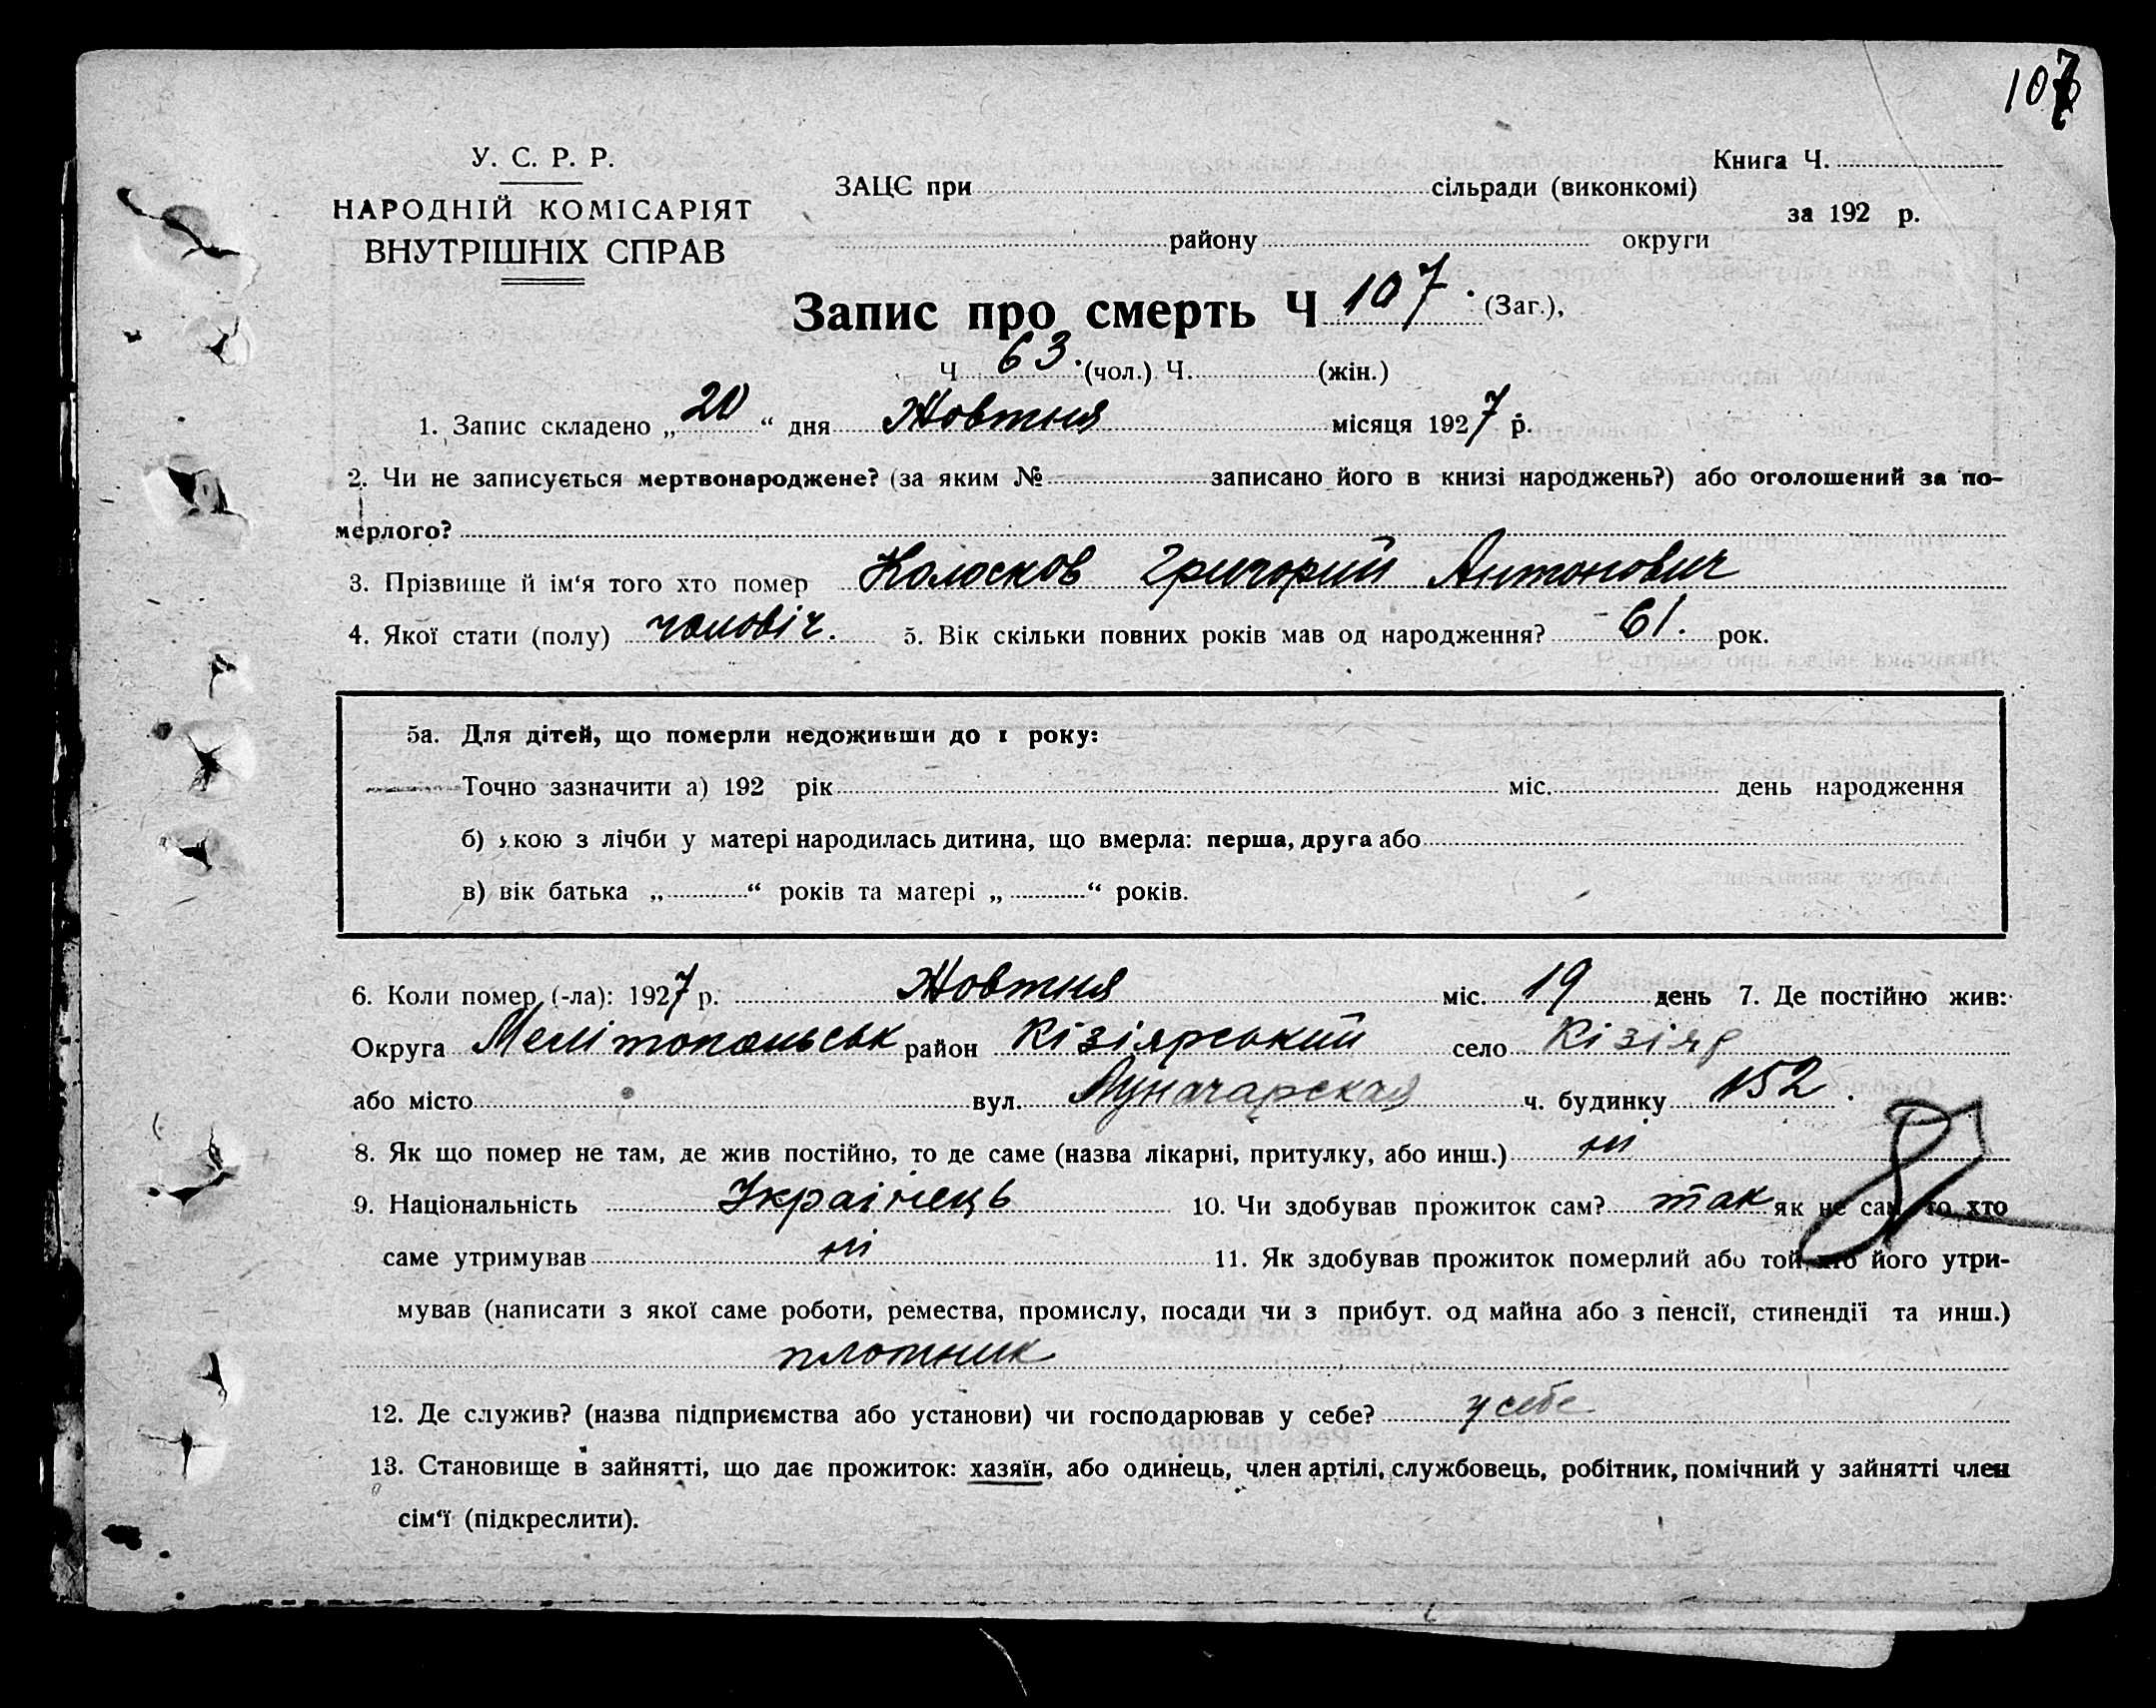 107
У. С. Р. Р.
НАРОДНІЙ КОМІСАРІЯТ
ВНУТРІШНІХ СПРАВ
Книга Ч.
ЗАЦС при сільради (виконкомі)
за 192 р.
району округи
Запис про смерть Ч 107. (Заг.),
Ч 63. (чол.) Ч. (жін.)
1. Запис складено „20“ дня Жовтня місяця 1927 р.
2. Чи не записується мертвонароджене? (за яким № записано його в книзі народжень?) або оголошений за по-
мерлого?
3. Прізвище й ім‘я того хто помер Колосков Григорий Антонович
4. Якої стати (полу) чоловіч. 5. Вік скільки повних років мав од народження? 61. рок.
5а. Для дітей, що померли недоживши до 1 року:
Точно зазначити а) 192 рік міс. день народження
б) якою з лічби у матері народилась дитина, що вмерла: перша, друга або
в) вік батька „ “ років та матері „ “ років.
6. Коли помер (-ла): 1927 р. Жовтня міс. 19 день 7. Де постійно жив:
Округа Мелітопольськ район Кізіярський село Кізіяр
або місто вул. Луначарская ч. будинку 152.
8. Як що помер не там, де жив постійно, то де саме (назва лікарні, притулку, або инш.) ні
9. Національність Украінець 10. Чи здобував прожиток сам? так як не сам, то хто
саме утримував ні 11. Як здобував прожиток померлий або той, хто його утри-
мував (написати з якої саме роботи, ремества, промислу, посади чи з прибут. од майна або з пенсії, стипендії та инш.)
плотник
12. Де служив? (назва підприємства або установи) чи господарював у себе? у себе
13. Становище в зайнятті, що дає прожиток: хазяїн, або одинець, член артілі, службовець, робітник, помічний у зайнятті член
сім‘ї (підкреслити).